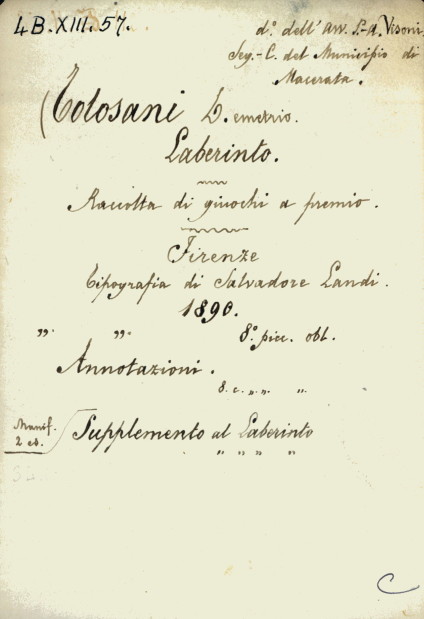 4B.XIII.57.
d.º dell'Avv. S.A. Visoni,
Seg.-C. del Municipio di
Macerata.
(Tolosani D.emetrio.
Laberinto.
Raccolta di giuochi a premio.
Firenze
Tipografia di Salvadore Landi.
1890.
" " 8.º picc. obl.
Annotazioni.
8. c. " " "
Manif.
2 ed.
Supplemento al Laberinto
" " " "
C